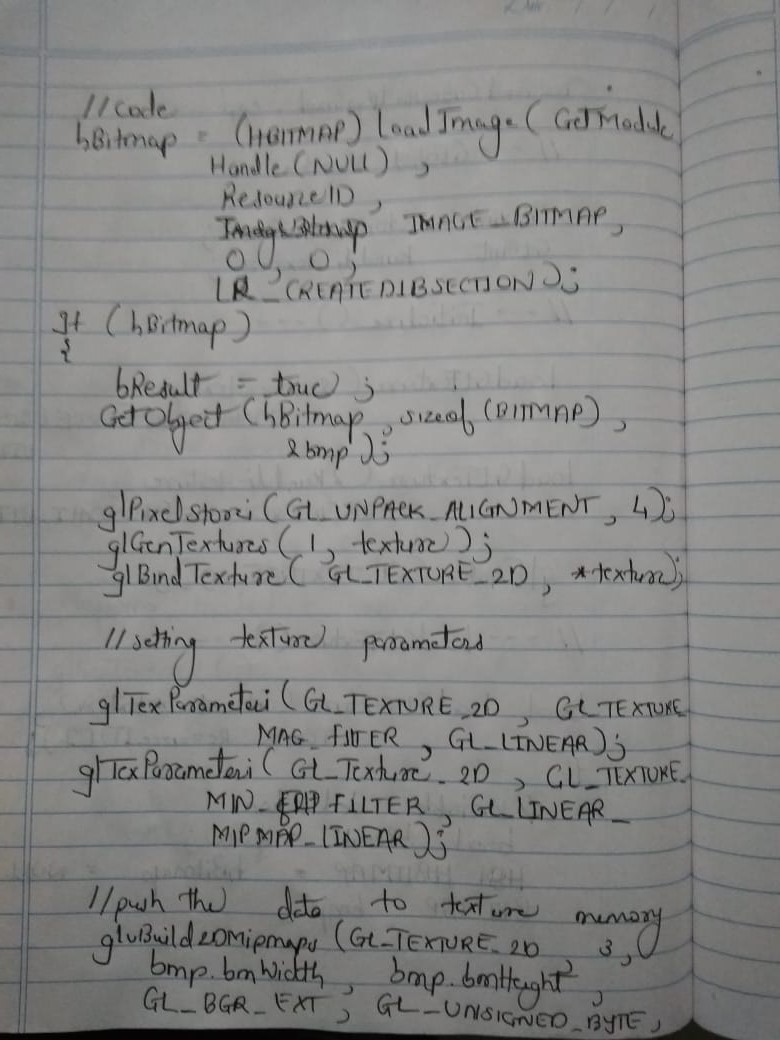 //code
hBitmap = (HBITMAP) LoadImage( GetModule
Handle(NULL) ,
ResourceID ,
IMAGE_BITMAP,
0 , 0 ,
LR_CREATEDIBSECTION);
If (hBitmap)
{
bResult = true ;
GetObject (hBitmap , sizeof (BITMAP) ,
&bmp );
glPixelStorei( GL_UNPACK_ALIGNMENT , 4);
glGenTextures( 1, texture );
glBindTexture( GL_TEXTURE_2D , *texture);
//setting texture parameters
glTexParameteri( GL_TEXTURE_2D , GL_TEXTURE_
MAG_FILTER , GL_LINEAR);
glTexParameteri( GL_Texture_2D , GL_TEXTURE_
MIN_FILTER , GL_LINEAR_
MIPMAP_LINEAR);
//push the data to texture memory
gluBuild2DMipmaps (GL_TEXTURE_2D , 3 ,
bmp.bmWidth , bmp.bmHeight ,
GL_BGR_EXT , GL_UNSIGNED_BYTE ,